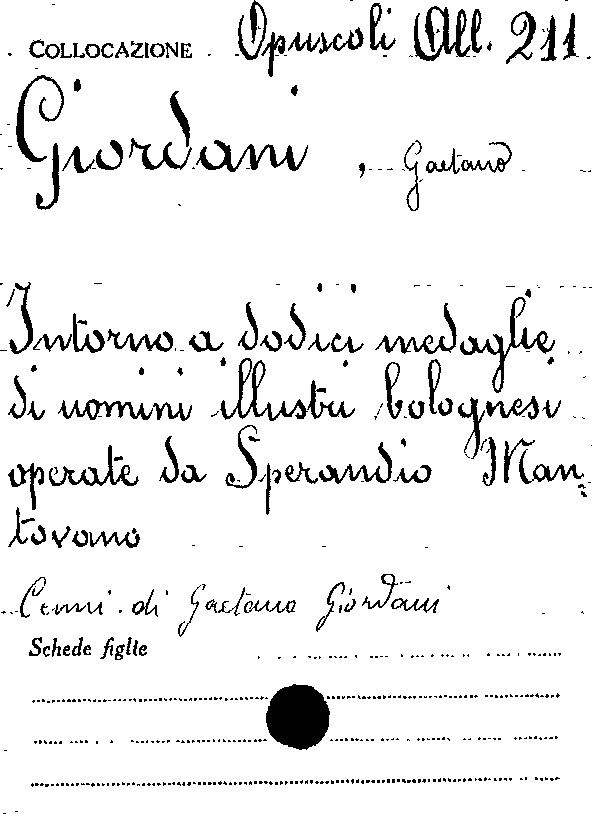 COLLOCAZIONE Opuscoli All. 211
Giordani, Gaetano
Intorno a dodici medaglie
di uomini illustri bolognesi
operate da Sperandio Man=
tovano
Cenni di Gaetano Giordani
Schede figlie